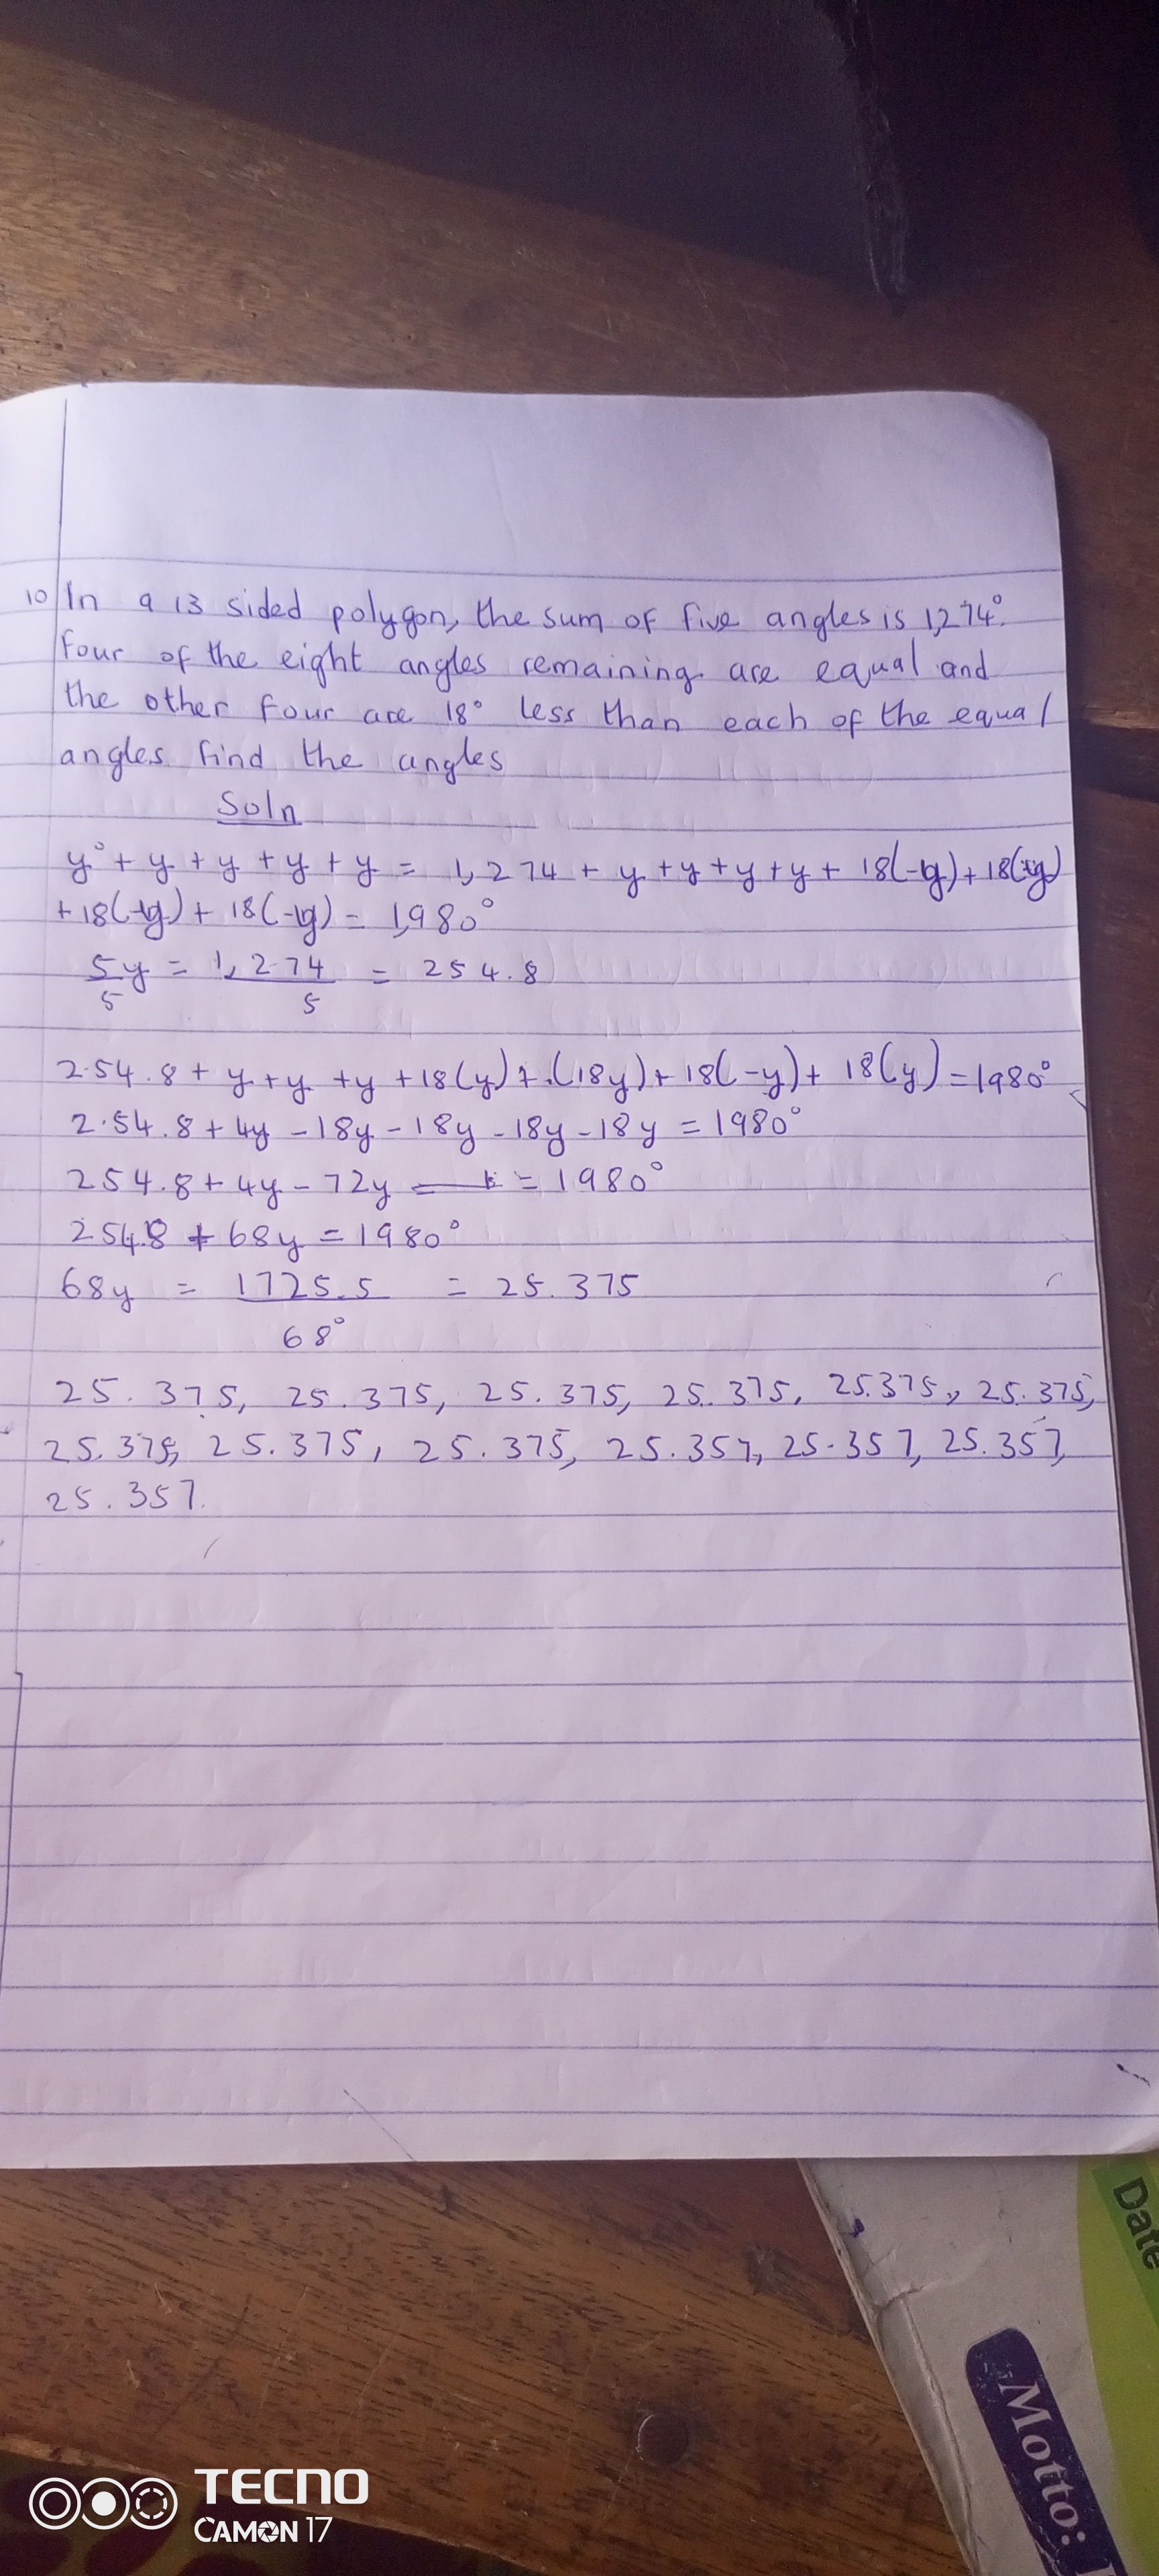 10 In a 13 sided polygon, the sum of five angles is 1,274°.
Four of the eight angles remaining are equal and
the other four are 18° less than each of the equal
angles. find the angles
Soln
y° + y + y + y + y = 1,274 + y + y + y + y + 18(-y) + 18(-y)
+ 18(-y) + 18(-y) = 1,980°
5y/5 = 1,274/5 = 254.8
2.54.8 + y + y + y + 18(y) + (18y) + 18(-y) + 18(y) = 1980°
2.54.8 + 4y - 18y - 18y - 18y - 18y = 1980°
254.8 + 4y - 72y = 1980°
254.8 + 68y = 1980°
68y = 1725.5/68° = 25.375
25.375, 25.375, 25.375, 25.375, 25.375, 25.375,
25.375, 25.375, 25.375, 25.357, 25.357, 25.357,
25.357.
Date
Motto:
TECNO
CAMON 17